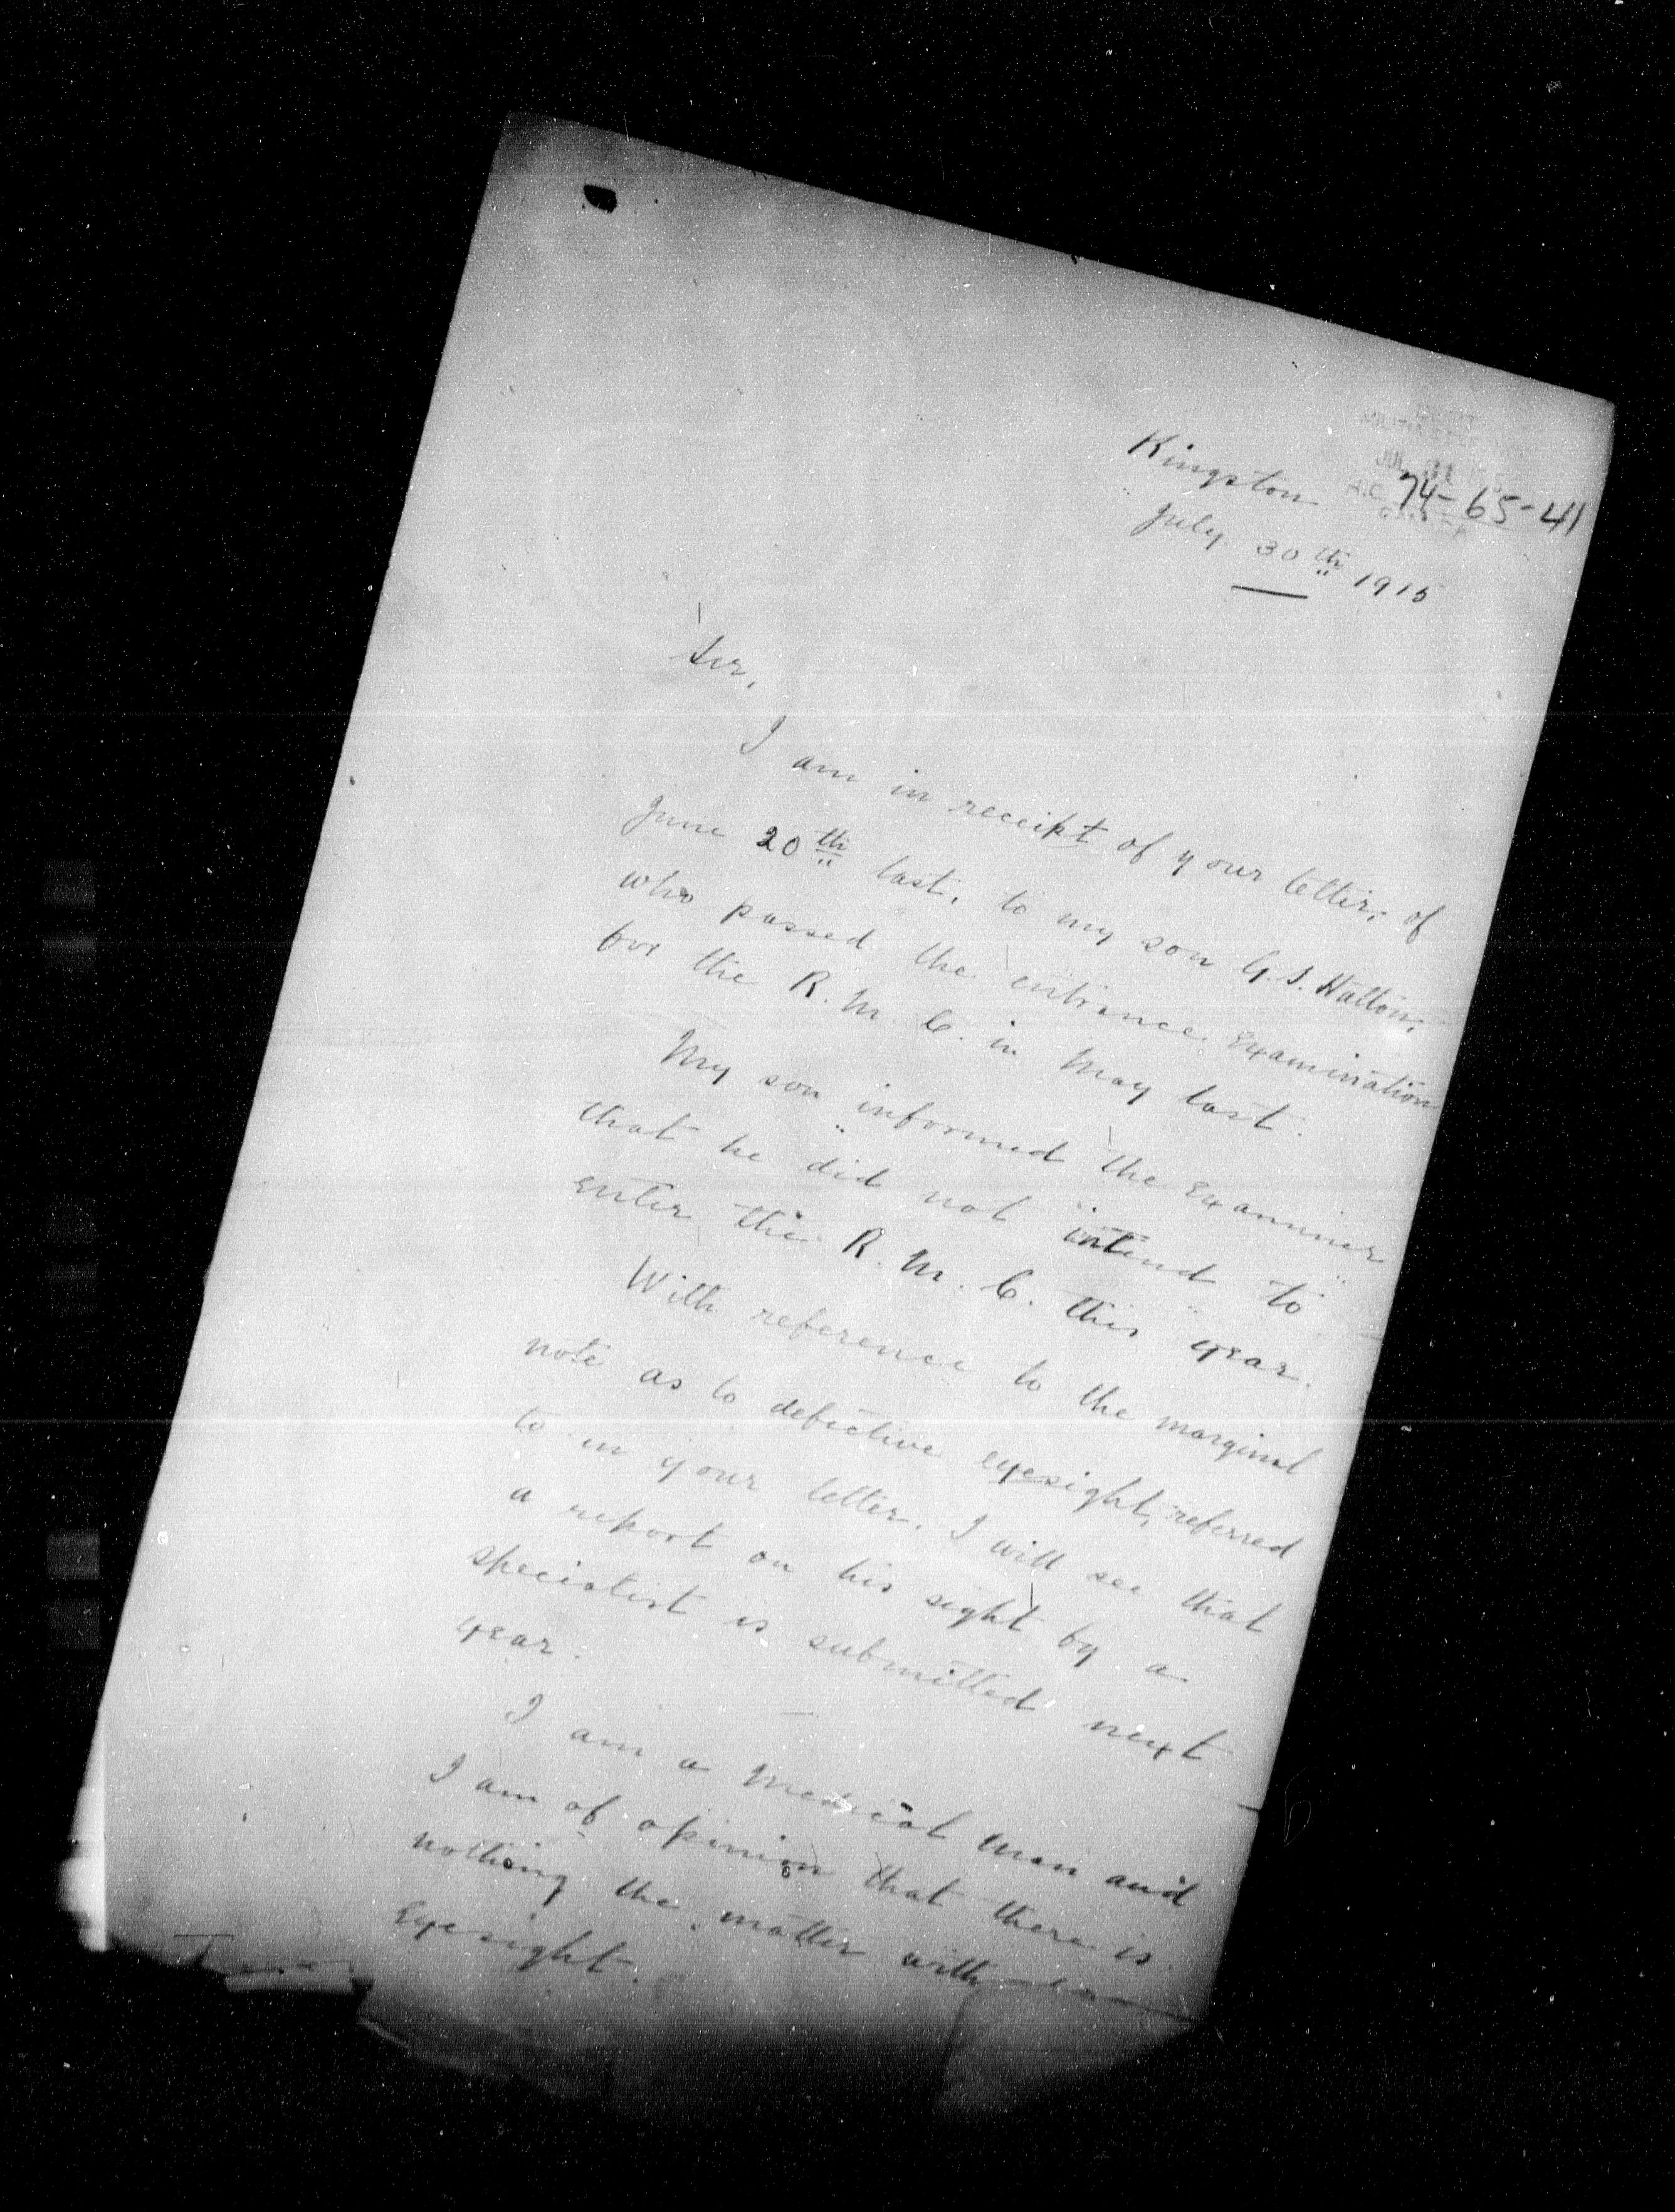 Kingston
74-65-41
July 30th 1915
Sir,
I am in receipt of your letter, of
June 20th last, to my son G. S. Hatton,
who passed the entrance Examination
for the R. M. C. in May last.
My son informed the Examiner
that he did not intend to
enter the R. M. C. this year.
With reference to the marginal
note as to defective eyesight, referred
to in your letter. I will see that
a report on his sight by a
specialist is submitted next
year.
I am a Medical man and
I am of opinion that there is
nothing the matter with
Eyesight.